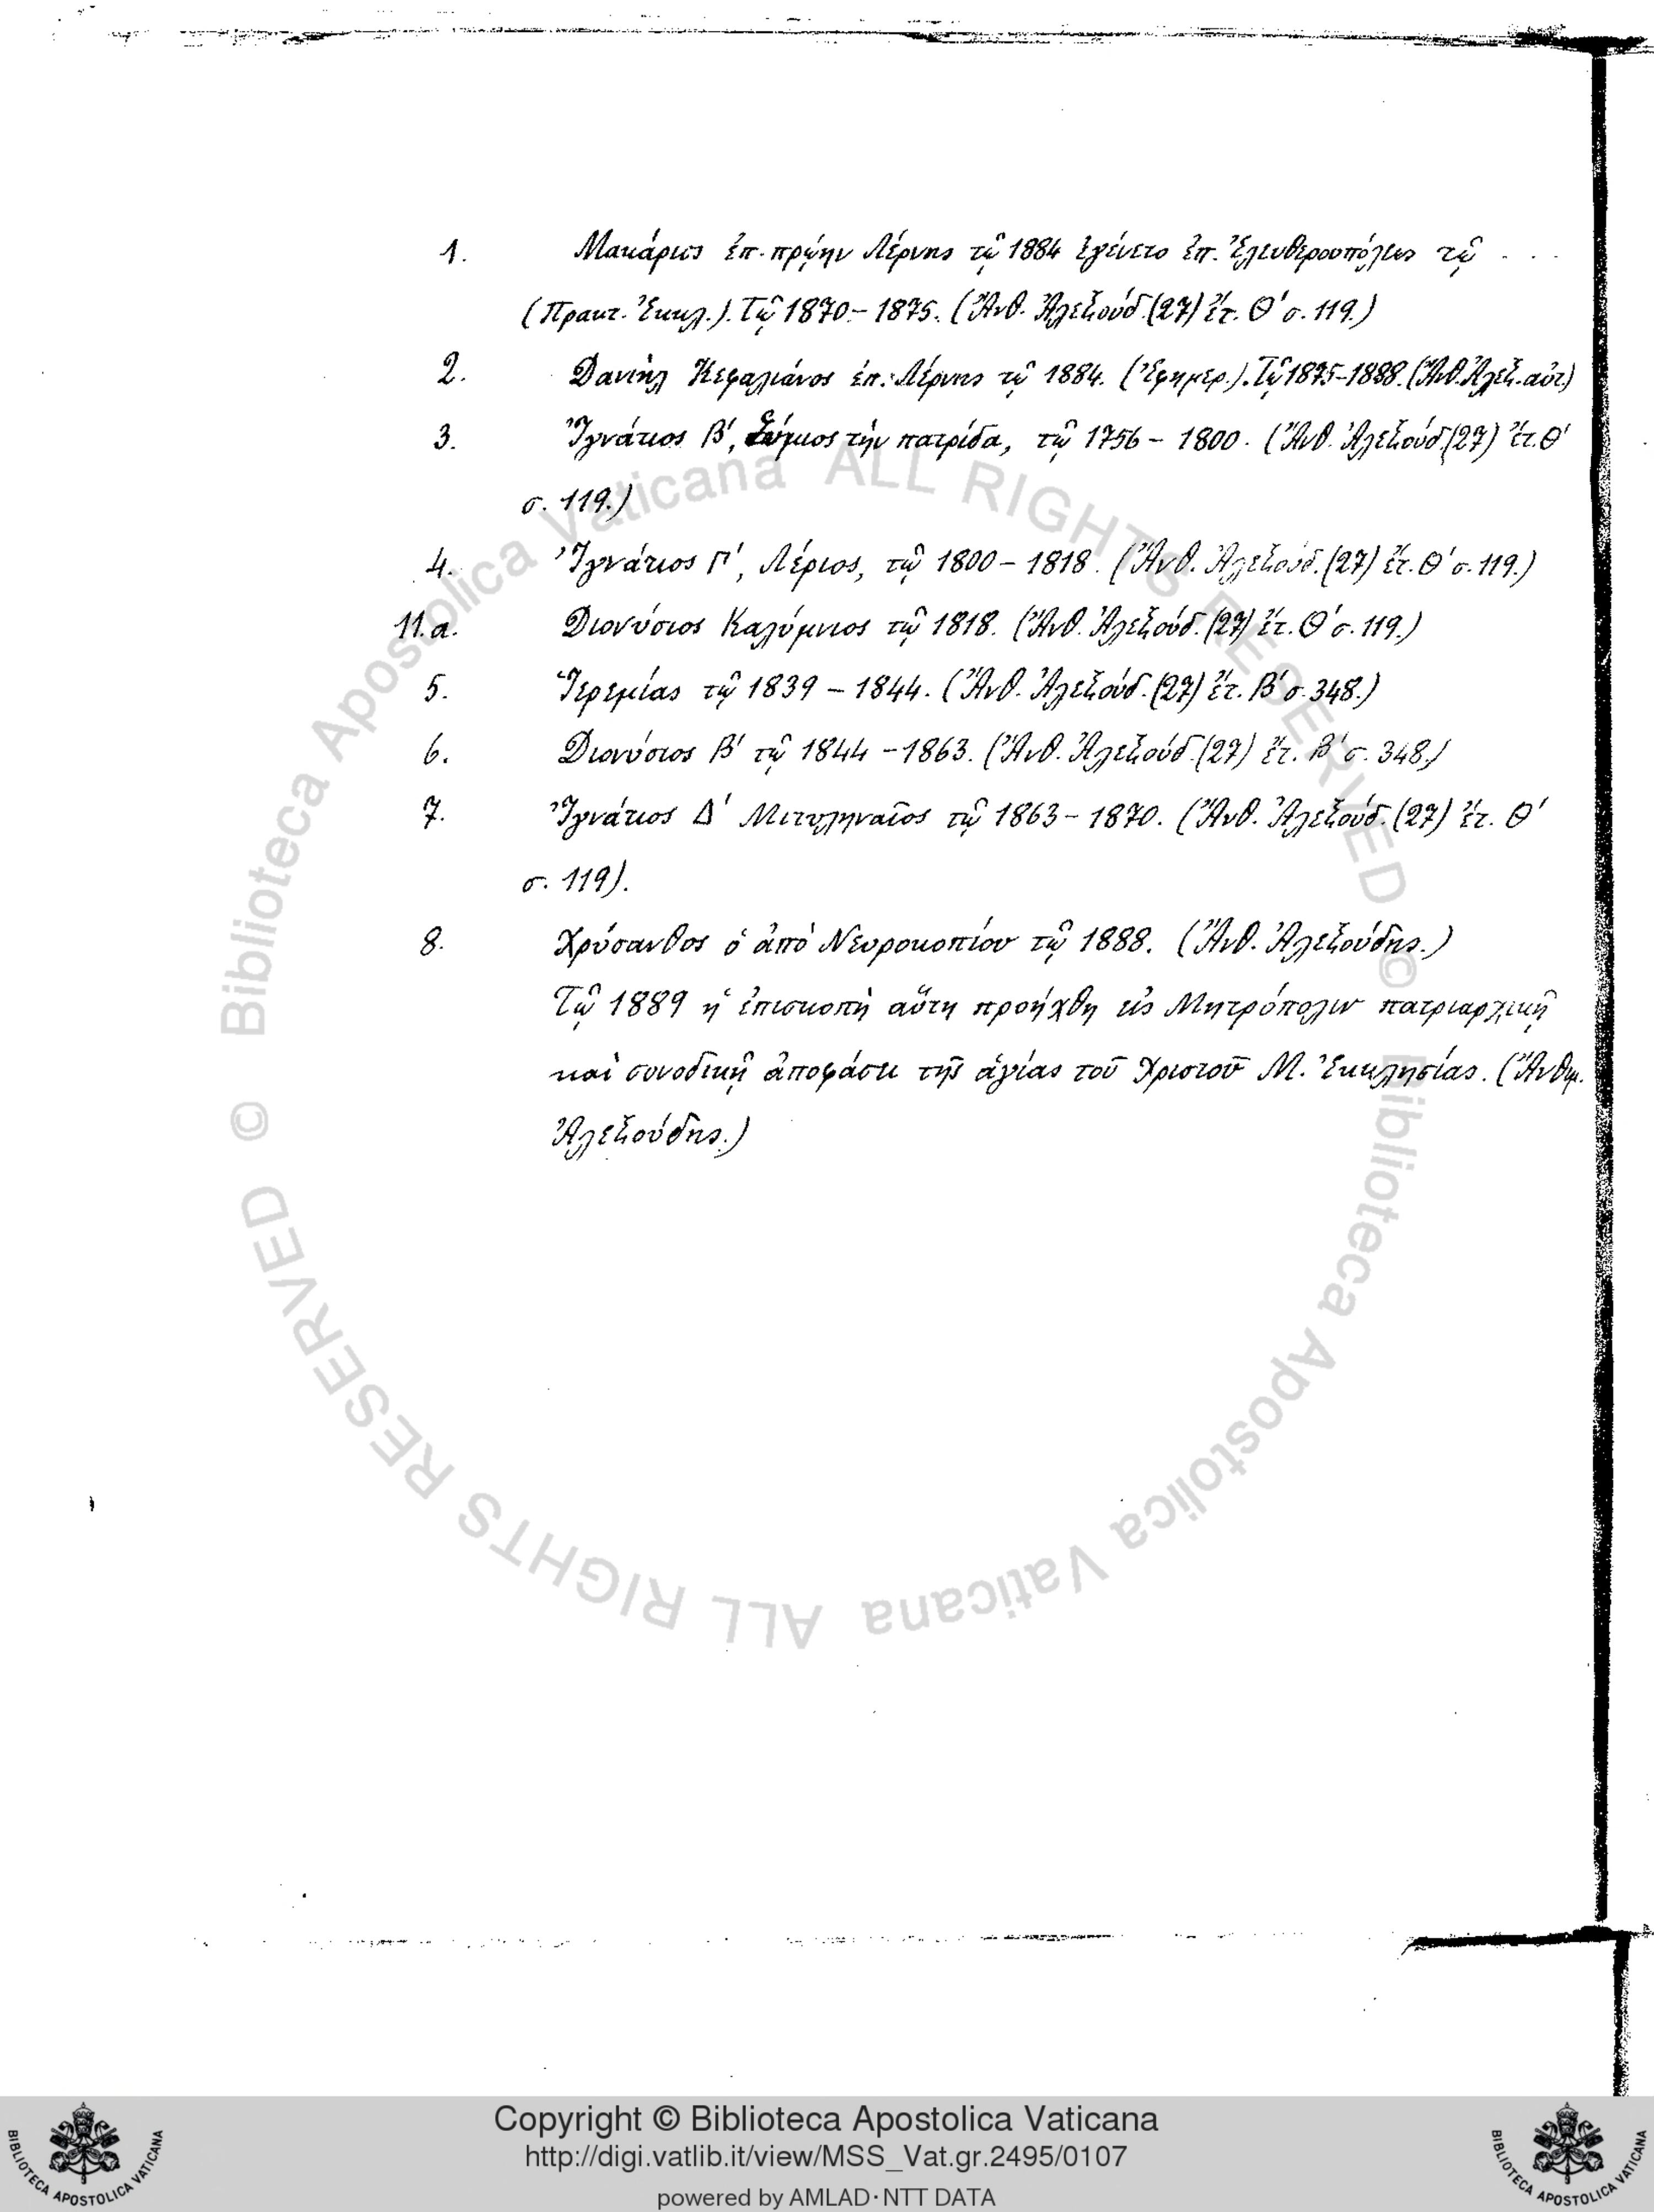 1. Μακάριος ἐπ. πρώην Λέρνης τῷ 1884 ἐγένετο ἐπ. Ἐλευθερουπόλεως τῷ . . .
(Πρακτ. Ἐκκλ.). Τῷ 1870 - 1875. (Ἄνθ. Ἀλεξούδ. (27) ἔτ. Θ' σ. 119.)
2. Δανιὴλ Κεφαλιάνος ἐπ. Λέρνης τῷ 1884. (Ἐφημερ.). Τῷ 1875-1888. (Ἄνθ. Ἀλεξ. αὐτ)
3. Ἰγνάτιος Β', Σύμιος τὴν πατρίδα, τῷ 1756 - 1800. (Ἄνθ. Ἀλεξούδ. (27) ἔτ. Θ'
σ. 119.)
4. Ἰγνάτιος Γ', Λέριος, τῷ 1800 - 1818. (Ἄνθ. Ἀλεξούδ. (27) ἔτ. Θ' σ. 119.)
11.a. Διονύσιος Καλύμνιος τῷ 1818. (Ἄνθ. Ἀλεξούδ. (27) ἔτ. Θ' σ. 119.)
5. Ἱερεμίας τῷ 1839 - 1844. (Ἄνθ. Ἀλεξούδ. (27) ἔτ. Β' σ. 348.)
6. Διονύσιος Β' τῷ 1844 - 1863. (Ἄνθ. Ἀλεξούδ. (27) ἔτ. Β' σ. 348.)
7. Ἰγνάτιος Δ' Μιτυληναῖος τῷ 1863 - 1870. (Ἄνθ. Ἀλεξούδ. (27) ἔτ. Θ'
σ. 119).
8. Χρύσανθος ὁ ἀπὸ Νευροκοπίου τῷ 1888. (Ἄνθ. Ἀλεξούδης.)
Τῷ 1889 ἡ ἐπισκοπὴ αὕτη προήχθη εἰς Μητρόπολιν πατριαρχικῇ
καὶ συνοδικῇ ἀποφάσει τῆς ἁγίας τοῦ Χριστοῦ Μ. Ἐκκλησίας. (Ἄνθιμ.
Ἀλεξούδης.)
© Biblioteca Apostolica Vaticana ALL RIGHTS RESERVED © Biblioteca Apostolica Vaticana ALL RIGHTS RESERVED
Copyright © Biblioteca Apostolica Vaticana
http://digi.vatlib.it/view/MSS_Vat.gr.2495/0107
powered by AMLAD·NTT DATA
BIBLIOTECA APOSTOLICA VATICANA
BIBLIOTECA APOSTOLICA VATICANA